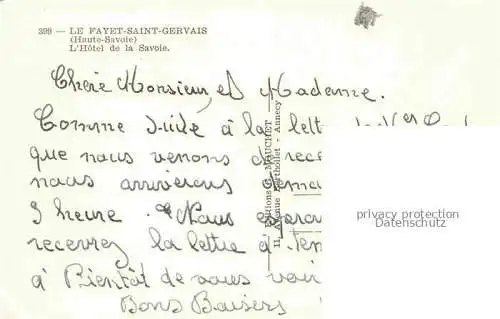 399 — LE FAYET-SAINT-GERVAIS
(Haute-Savoie)
L'Hôtel de la Savoie.
Chère Monsieur, et Madame.
Comme suite à la lett
que nous venons de rece
nous arriverons dema
3 heure. Nous espero
recevrez la lettre à tem
à Bientôt de vous voir
Bons Baisers
Editions MAUCHET
11, Avenue Berthollet - Annecy
privacy protection
Datenschutz